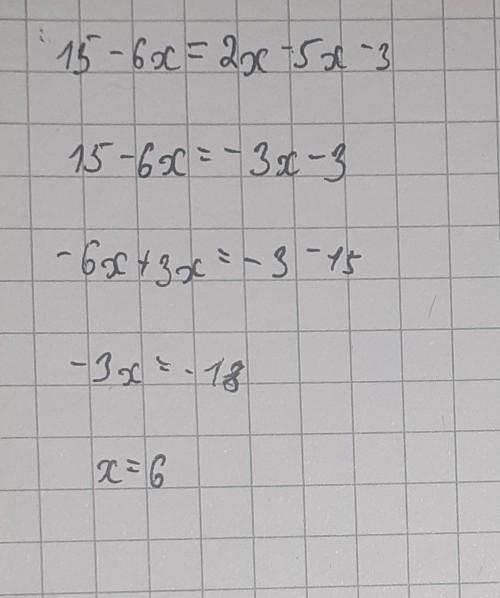 15 - 6x = 2x - 5x - 3
15 - 6x = - 3x - 3
- 6x + 3x = - 3 - 15
- 3x = - 18
x = 6